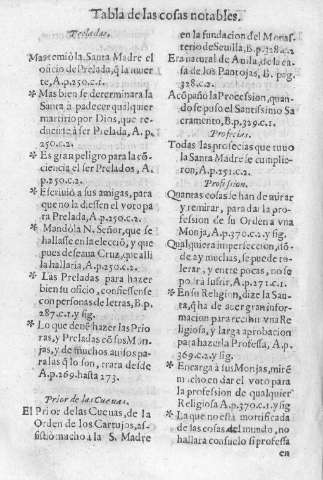 Tabla de las cosas notables.
Preladas.
Mas temiò la Santa Madre el
oficio de Prelada, q̃ la muer
te, A.p.250.c.1.
* Mas bien se determinara la
Santa a padecer qualquier
martirio por Dios, que re-
ducirse à ser Prelada, A.p.
250.c.2.
* Es gran peligro para la cõ-
ciencia el ser Prelados, A.
p.250.c.2.
* Escriuiò a sus amigas, para
que no la diessen el voto pa
ra Prelada, A.p.250.c.2.
* Mandòla N. Señor, que se
hallasse en la elecciõ, y que
pues desseaua Cruz, que alli
la hallaria, A.p.250.c.2.
* Las Preladas para hazer
bien su oficio, confiessense
con personas de letras, B.p.
287.c.1.y sig.
* Lo que deuẽ hazer las Prio
ras, y Preladas cõ sus Mon-
jas, y de muchos auisos pa-
ra las q̃ lo son, trata desde
A.p.269.hasta 273.
Prior de las Cueuas.
El Prior de las Cueuas, de la
Orden de los Cartujos, as-
sistio mucho à la S. Madre
en la fundacion del Monas-
terio de Seuilla, B.p.328.c.2.
Era natural de Auila, de la ca
sa de los Pantojas, B. pag.
328.c.2.
Acõpañò la Procession, quan
do se puso el Santissimo Sa
cramento, B.p.329.c.1.
Profecias.
Todas las profecias que tuuo
la Santa Madre se cumplie-
ron, A.p.251.c.2.
Profession.
Quantas cosas se han de mirar
y remirar, para dar la pro-
fession de su Orden a vna
Monja, A.p.370.c.2.y sig.
Qualquiera imperfeccion, dõ-
de ay muchas, se puede to-
lerar, y entre pocas, no se
podrà sufrir, A.p.271.c.1.
* En su Religion, dize la San-
ta, q̃ ha de auer gran infor-
macion para recibir vna Re
ligiosa, y larga aprobacion
para hazerla Professa, A.p.
369.c.2.y sig.
* Encarga à sus Monjas, mirẽ
mucho en dar el voto para
la profession de qualquier
Religiosa A.p.370.c.1.y sig
* La que no està mortificada
de las cosas del mundo, no
hallara consuelo si professa
en